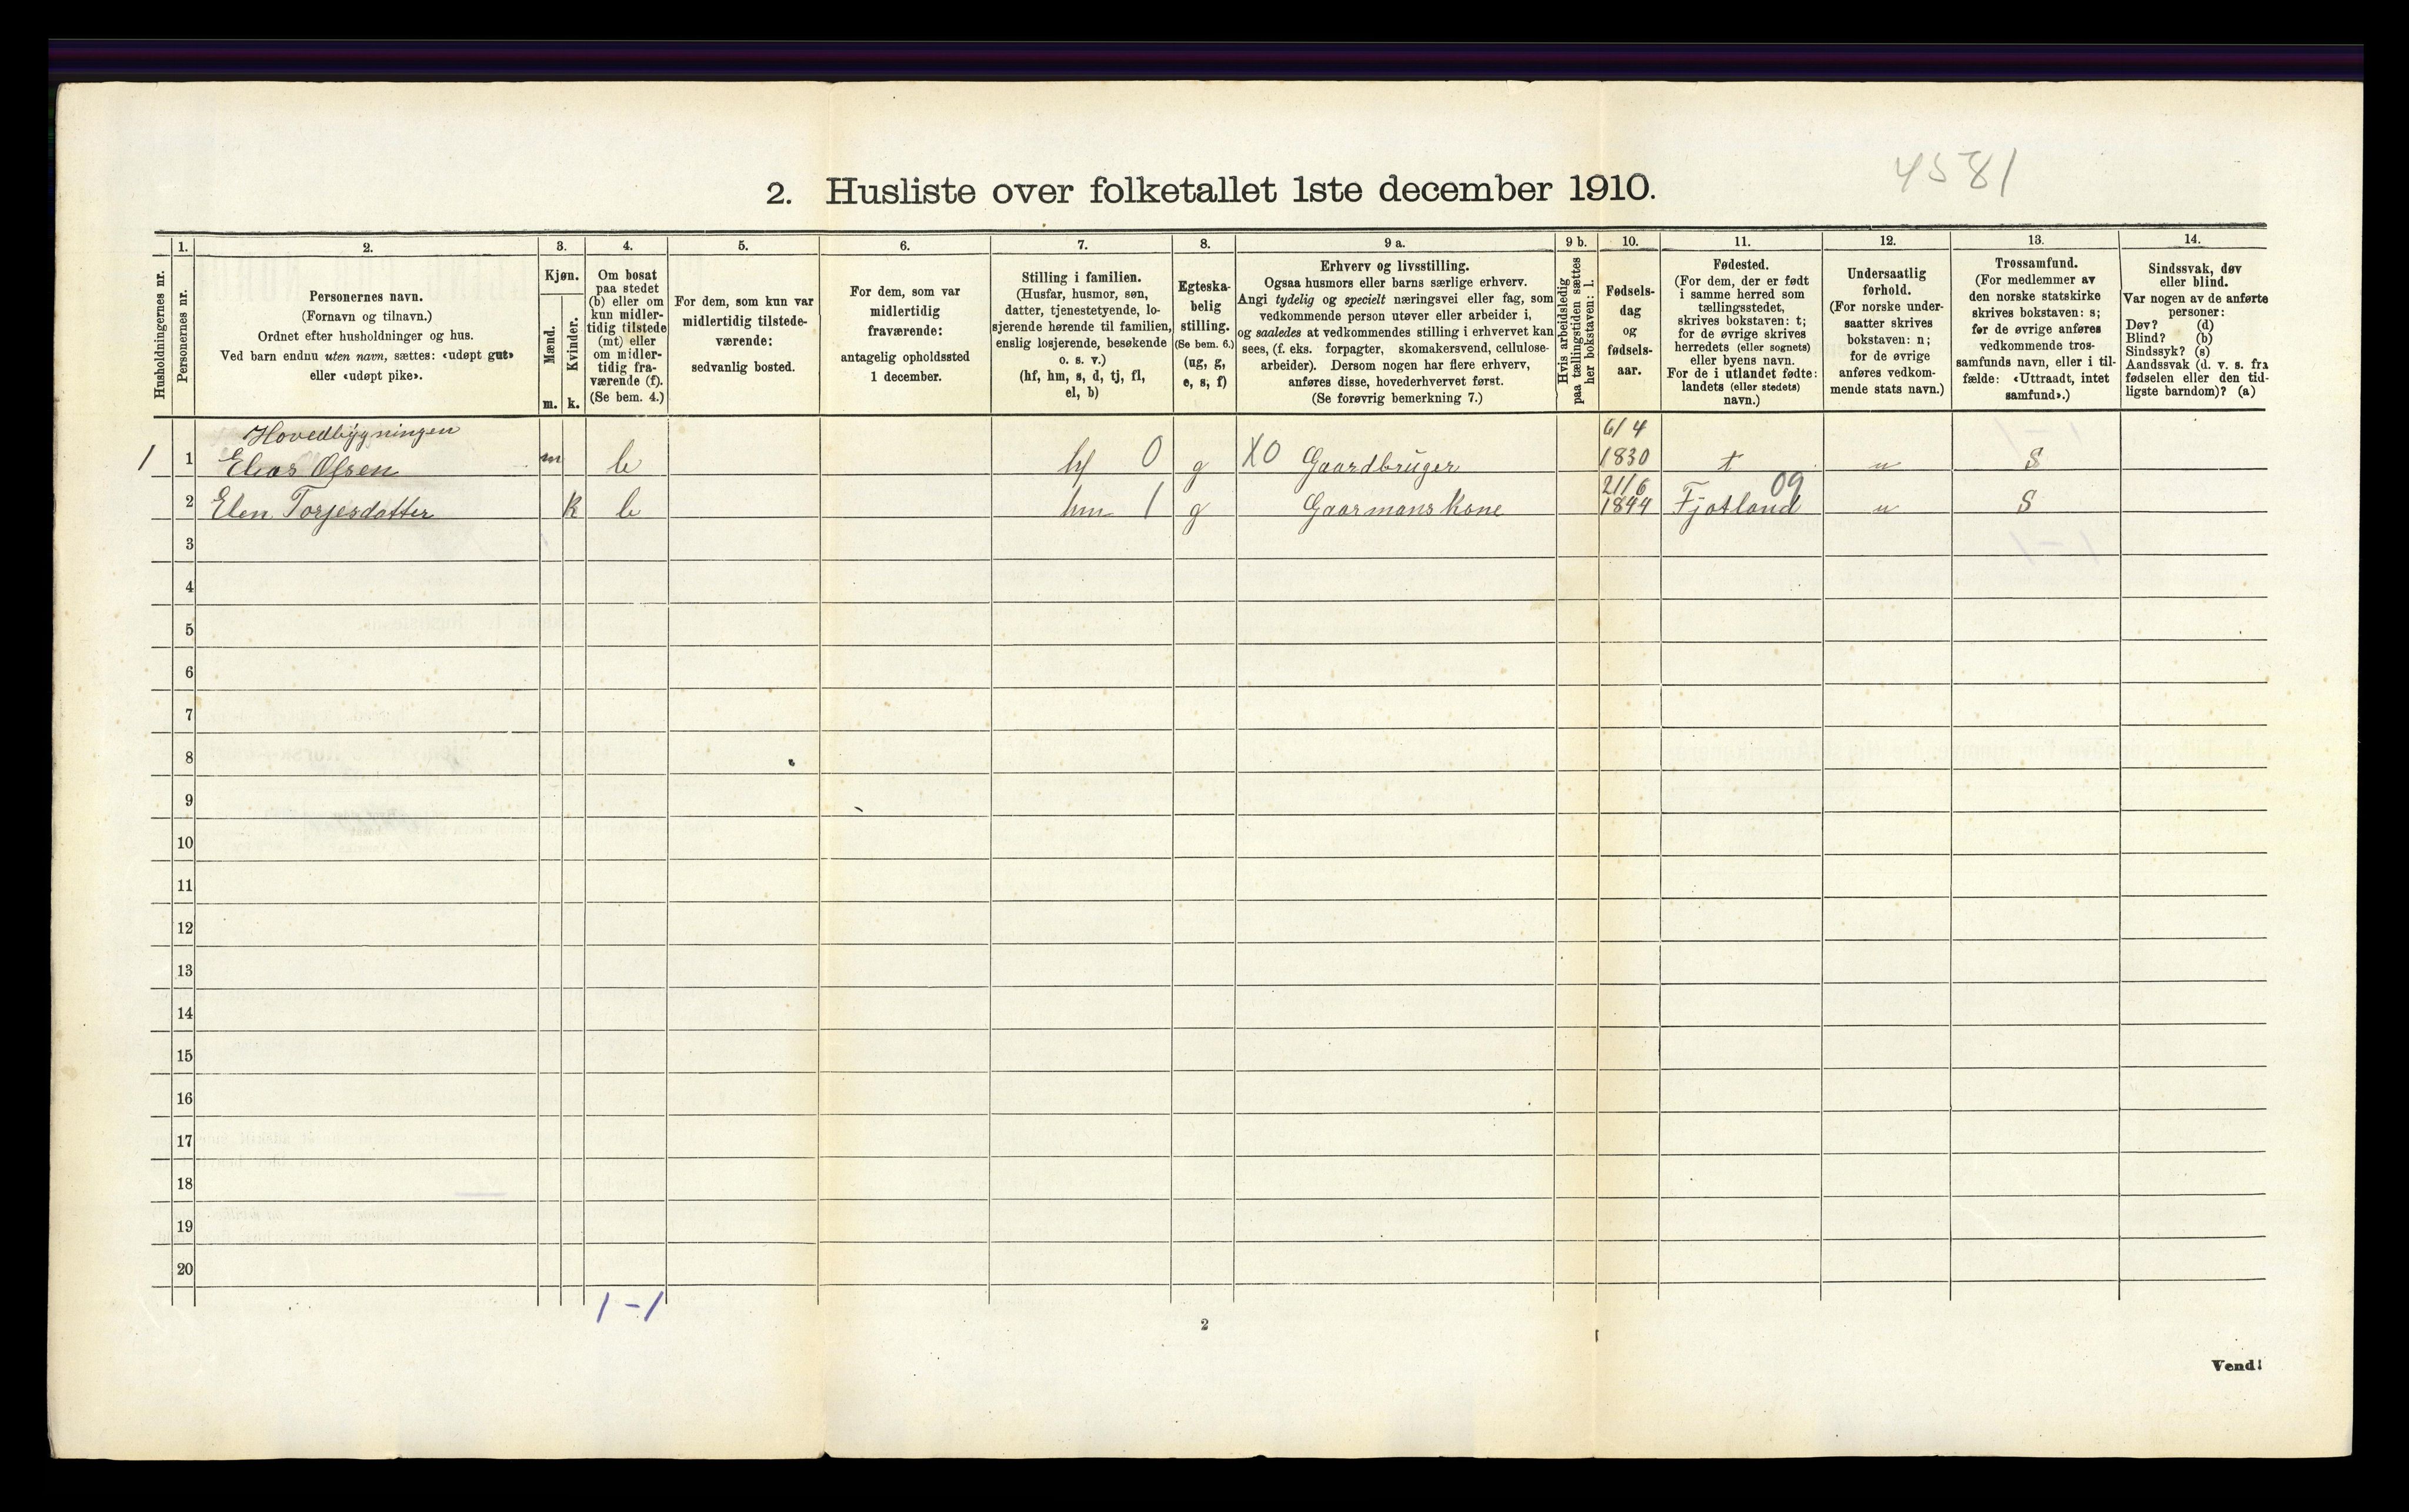 4581
2. Husliste over folketallet 1ste december 1910.
1. 2. 3. 4. 5. 6. 7. 8. 9 a. 9 b. 10. 11. 12. 13. 14.
Husholdningernes nr.
Personernes nr.
Personernes navn.
(Fornavn og tilnavn.)
Ordnet efter husholdninger og hus.
Ved barn endnu uten navn, sættes: «udøpt gut»
eller «udøpt pike».
Kjøn.
Mænd.
Kvinder.
m. k.
Om bosat
paa stedet
(b) eller om
kun midler-
tidig tilstede
(mt) eller
om midler-
tidig fra-
værende (f).
(Se bem. 4.)
For dem, som kun var
midlertidig tilstede-
værende:
sedvanlig bosted.
For dem, som var
midlertidig
fraværende:
antagelig opholdssted
1 december.
Stilling i familien.
(Husfar, husmor, søn,
datter, tjenestetyende, lo-
sjerende hørende til familien,
enslig losjerende, besøkende
o. s. v.)
(hf, hm, s, d, tj, fl,
el, b)
Egteska-
belig
stilling.
(Se bem. 6.)
(ug, g,
e, s, f)
Erhverv og livsstilling.
Ogsaa husmors eller barns særlige erhverv.
Angi tydelig og specielt næringsvei eller fag, som
vedkommende person utøver eller arbeider i,
og saaledes at vedkommendes stilling i erhvervet kan
sees, (f. eks. forpagter, skomakersvend, cellulose-
arbeider). Dersom nogen har flere erhverv,
anføres disse, hovederhvervet først.
(Se forøvrig bemerkning 7.)
Hvis arbeidsledig
paa tællingstiden sættes
her bokstaven: l.
Fødsels-
dag
og
fødsels-
aar.
Fødested.
(For dem, der er født
i samme herred som
tællingsstedet,
skrives bokstaven: t;
for de øvrige skrives
herredets (eller sognets)
eller byens navn.
For de i utlandet fødte:
landets (eller stedets)
navn.)
Undersaatlig
forhold.
(For norske under-
saatter skrives
bokstaven: n;
for de øvrige
anføres vedkom-
mende stats navn.)
Trossamfund.
(For medlemmer av
den norske statskirke
skrives bokstaven: s;
før de øvrige anføres
vedkommende tros-
samfunds navn, eller i til-
fælde: «Uttraadt, intet
samfund».)
Sindssvak, døv
eller blind.
Var nogen av de anførte
personer:
Døv? (d)
Blind? (b)
Sindssyk? (s)
Aandssvak (d. v. s. fra
fødselen eller den tid-
ligste barndom)? (a)
Hovedbygningen 6/4
1 1 Elias Olsen m b hf 0 g X0 Gaardbruger 1830 t n S
21/6 09
2 Elen Torjesdatter k b hm 1 g Gaarmans Kone 1844 Fjotland n S
3
4
5
6
7
8
9
10
11
12
13
14
15
16
17
18
19
20
1 - 1
2
Vend!